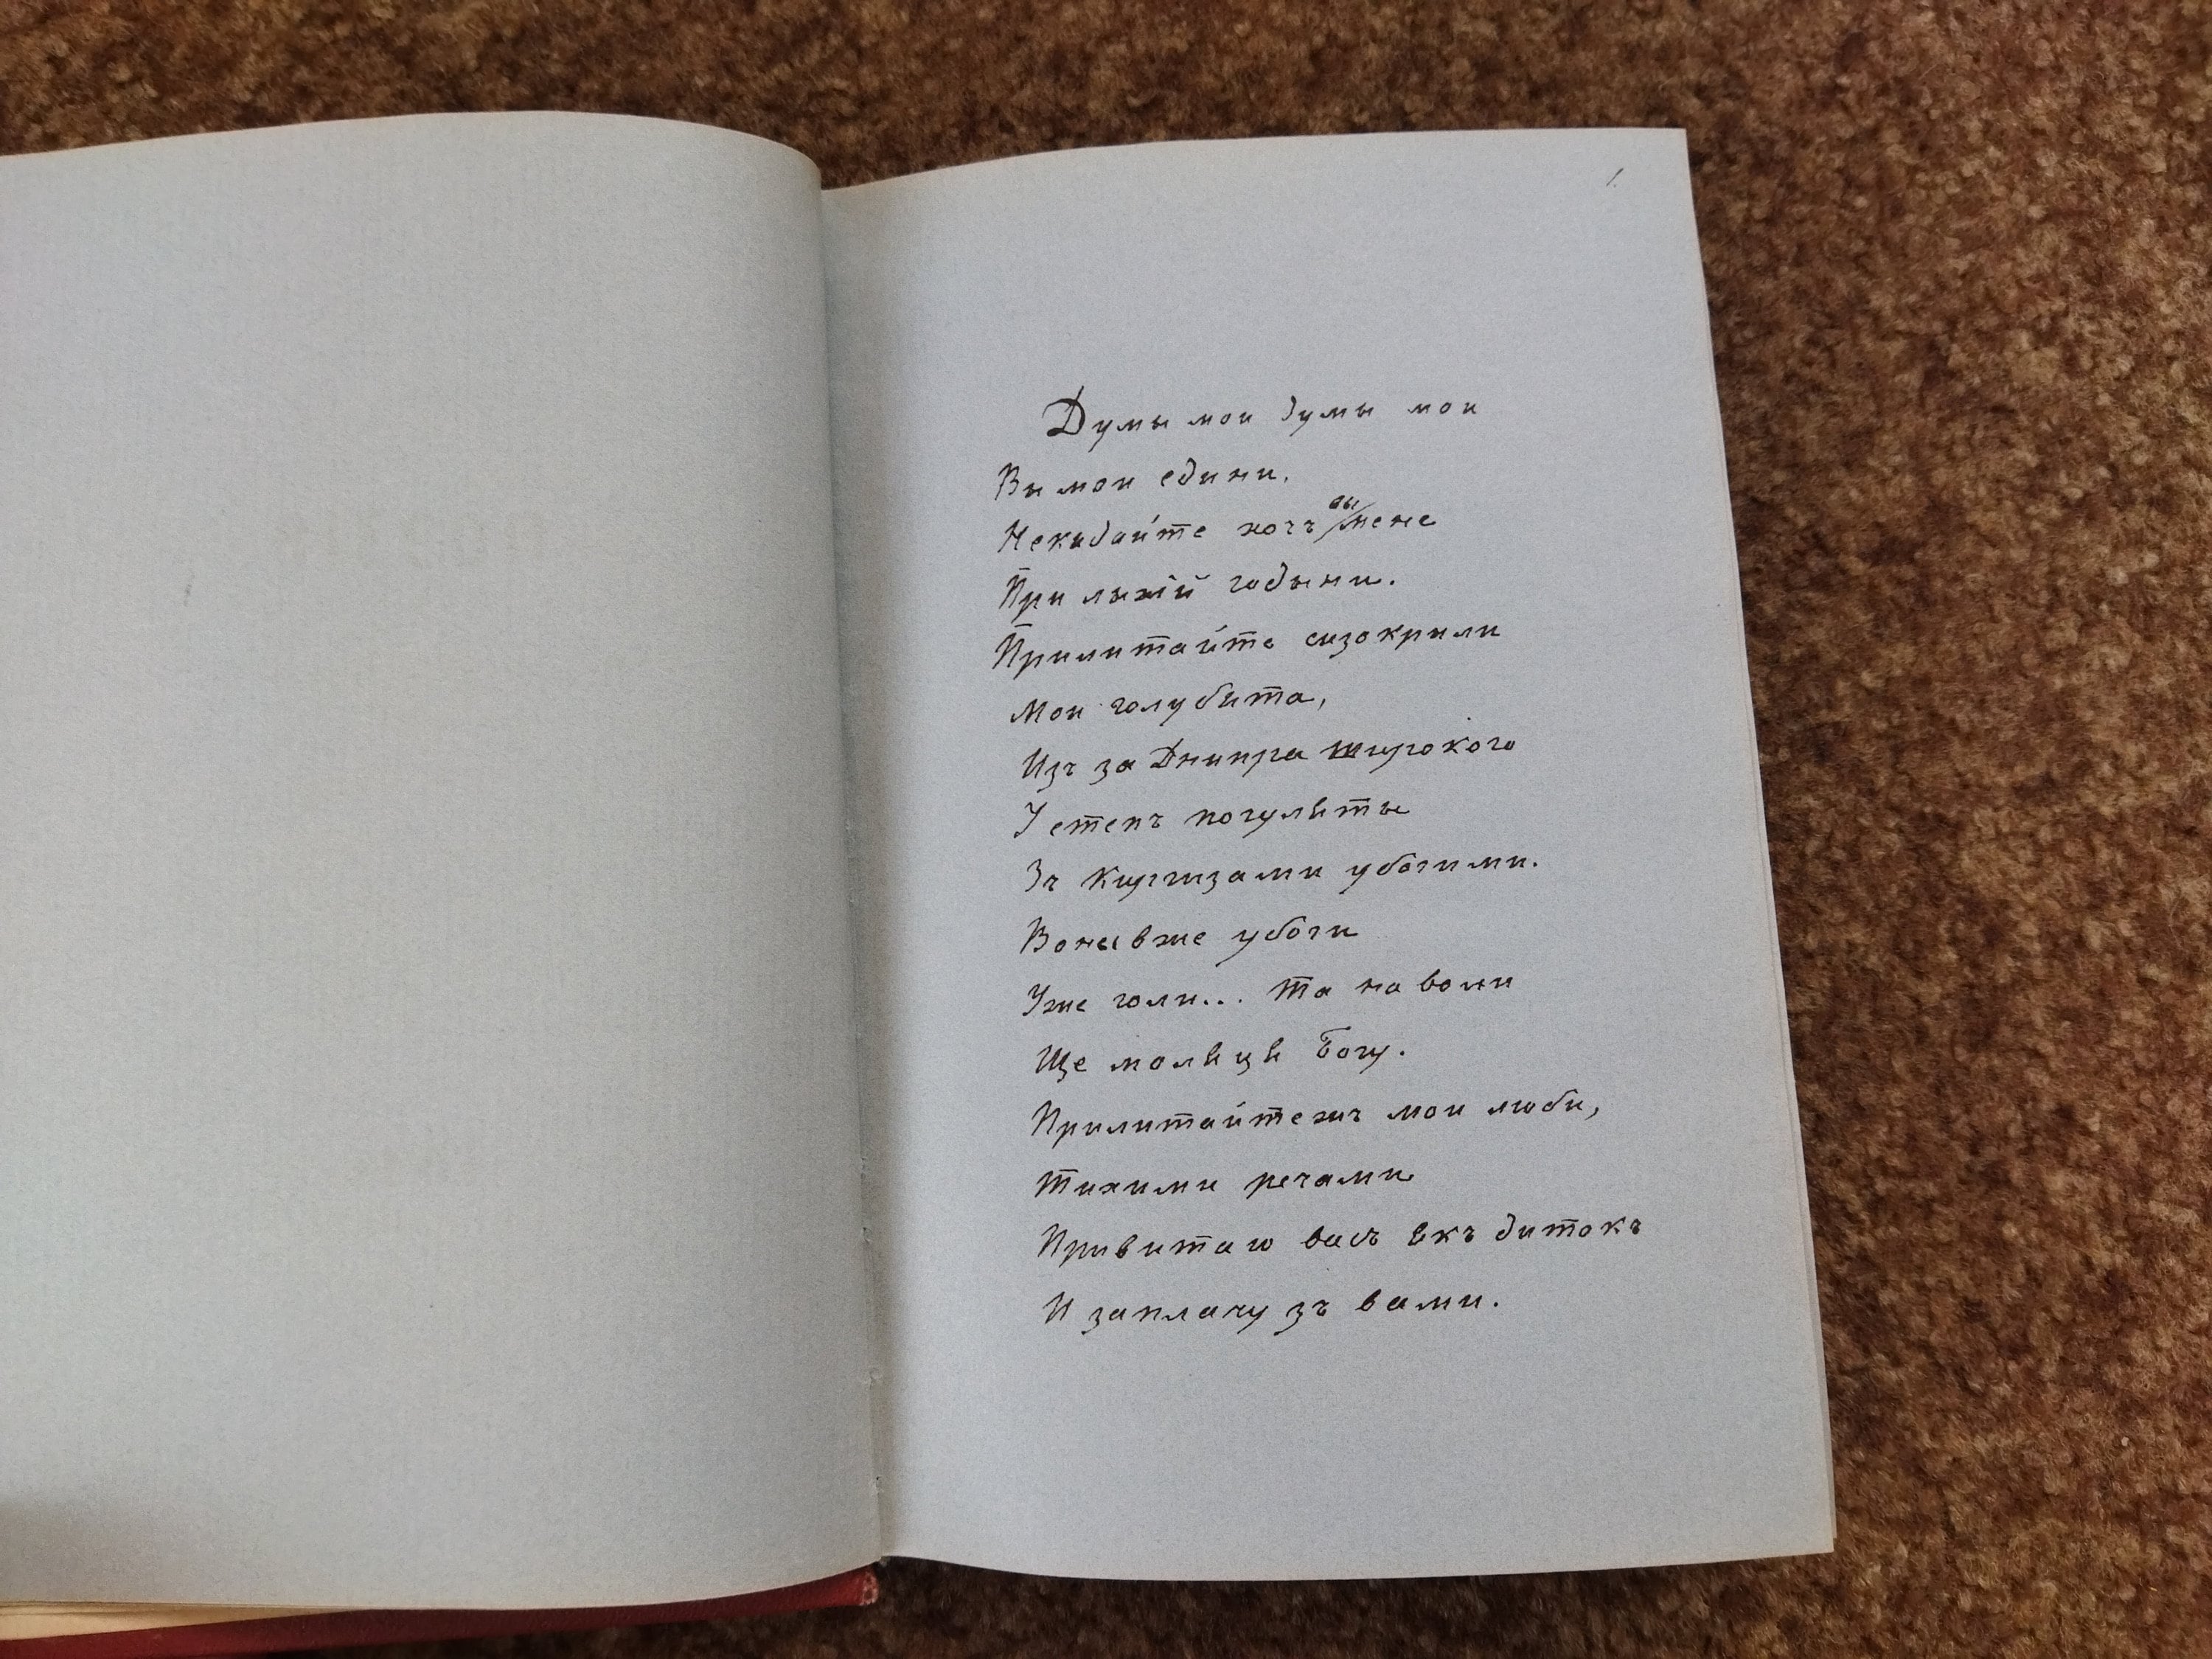 1.
Думы мои думы мои
Вы мои едини,
Некидайте хочъ вы мене
При лыхій годыни.
Прилитайте сизокрили
Мои голубѣта,
Изъ за Днипра широкого
У степъ погулѣты
Зъ Киргизами убогими.
Воны вже убоги
Уже голи... та на воли
Ще молѣцѣ Богу.
Прилитайтежъ мои люби,
Тихими речами
Привитаю васъ ѣкъ дитокъ
И заплачу зъ вами.